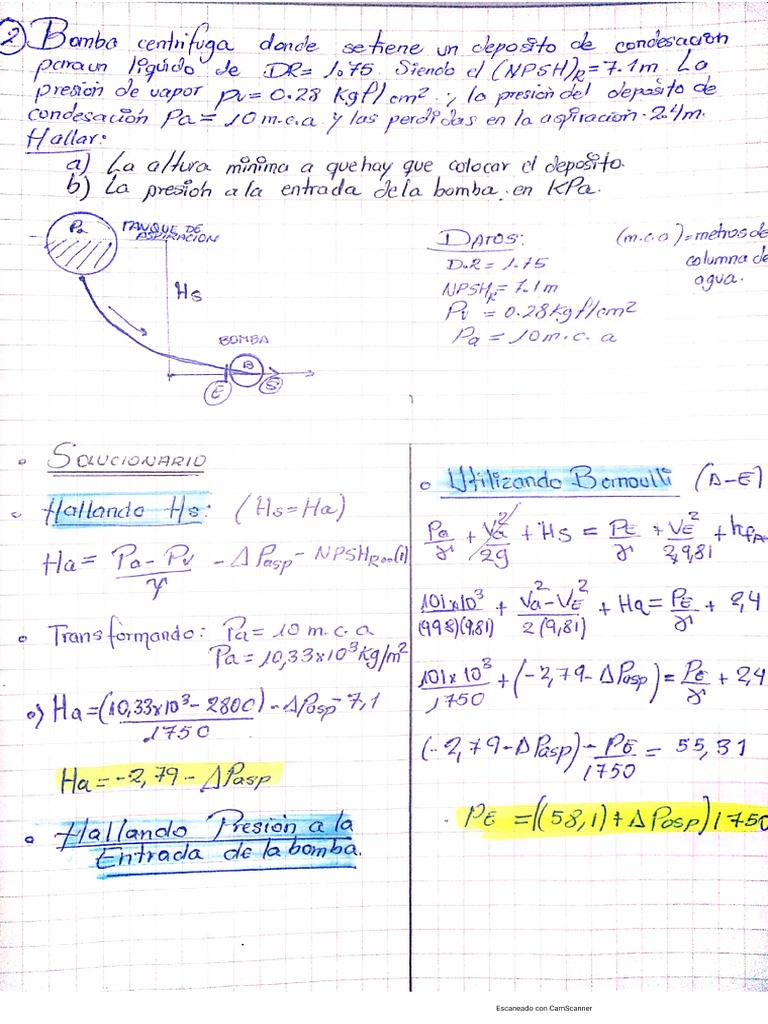 2) Bomba centrifuga donde se tiene un deposito de condesación
para un liquido de DR= 1.75. Siendo el (NPSH)R = 7.1m. La
presión de vapor pv = 0.28 Kgf/cm² ; la presión del deposito de
condesación Pa = 10 m.c.a y las perdidas en la aspiración. 2.4m.
Hallar:
a) La altura minima a que hay que colocar el deposito.
b) La presion a la entrada de la bomba. en KPa.
Pa
TANQUE DE
ASPIRACIÓN
Hs
BOMBA
B
E
S
DATOS:
D.R = 1.75
NPSHR = 7.1m
Pv = 0.28 Kgf/cm²
Pa = 10 m.c.a
(m.c.a) = metros de
columna de
agua.
SOLUCIONARIO
Hallando Hs: (Hs = Ha)
Ha = (Pa - Pv)/γ - ΔPasp - NPSHR ... (1)
Transformando: Pa = 10 m.c.a
Pa = 10,33x10³ Kg/m²
Ha = (10,33x10³ - 2800)/1750 - ΔPasp - 7,1
Ha = -2,79 - ΔPasp
Hallando Presión a la
Entrada de la bomba.
Utilizando Bernoulli (A-E)
Pa/γ + Va²/2g + Hs = PE/γ + VE²/2,9,81 + hf
101x10³/(998)(9,81) + (Va² - VE²)/2(9,81) + Ha = PE/γ + 2,4
101x10³/1750 + (-2,79 - ΔPasp) = PE/γ + 2,4
(-2,79 - ΔPasp) - PE/1750 = 55,31
PE = ((58,1) + ΔPasp) 1750
Escaneado con CamScanner